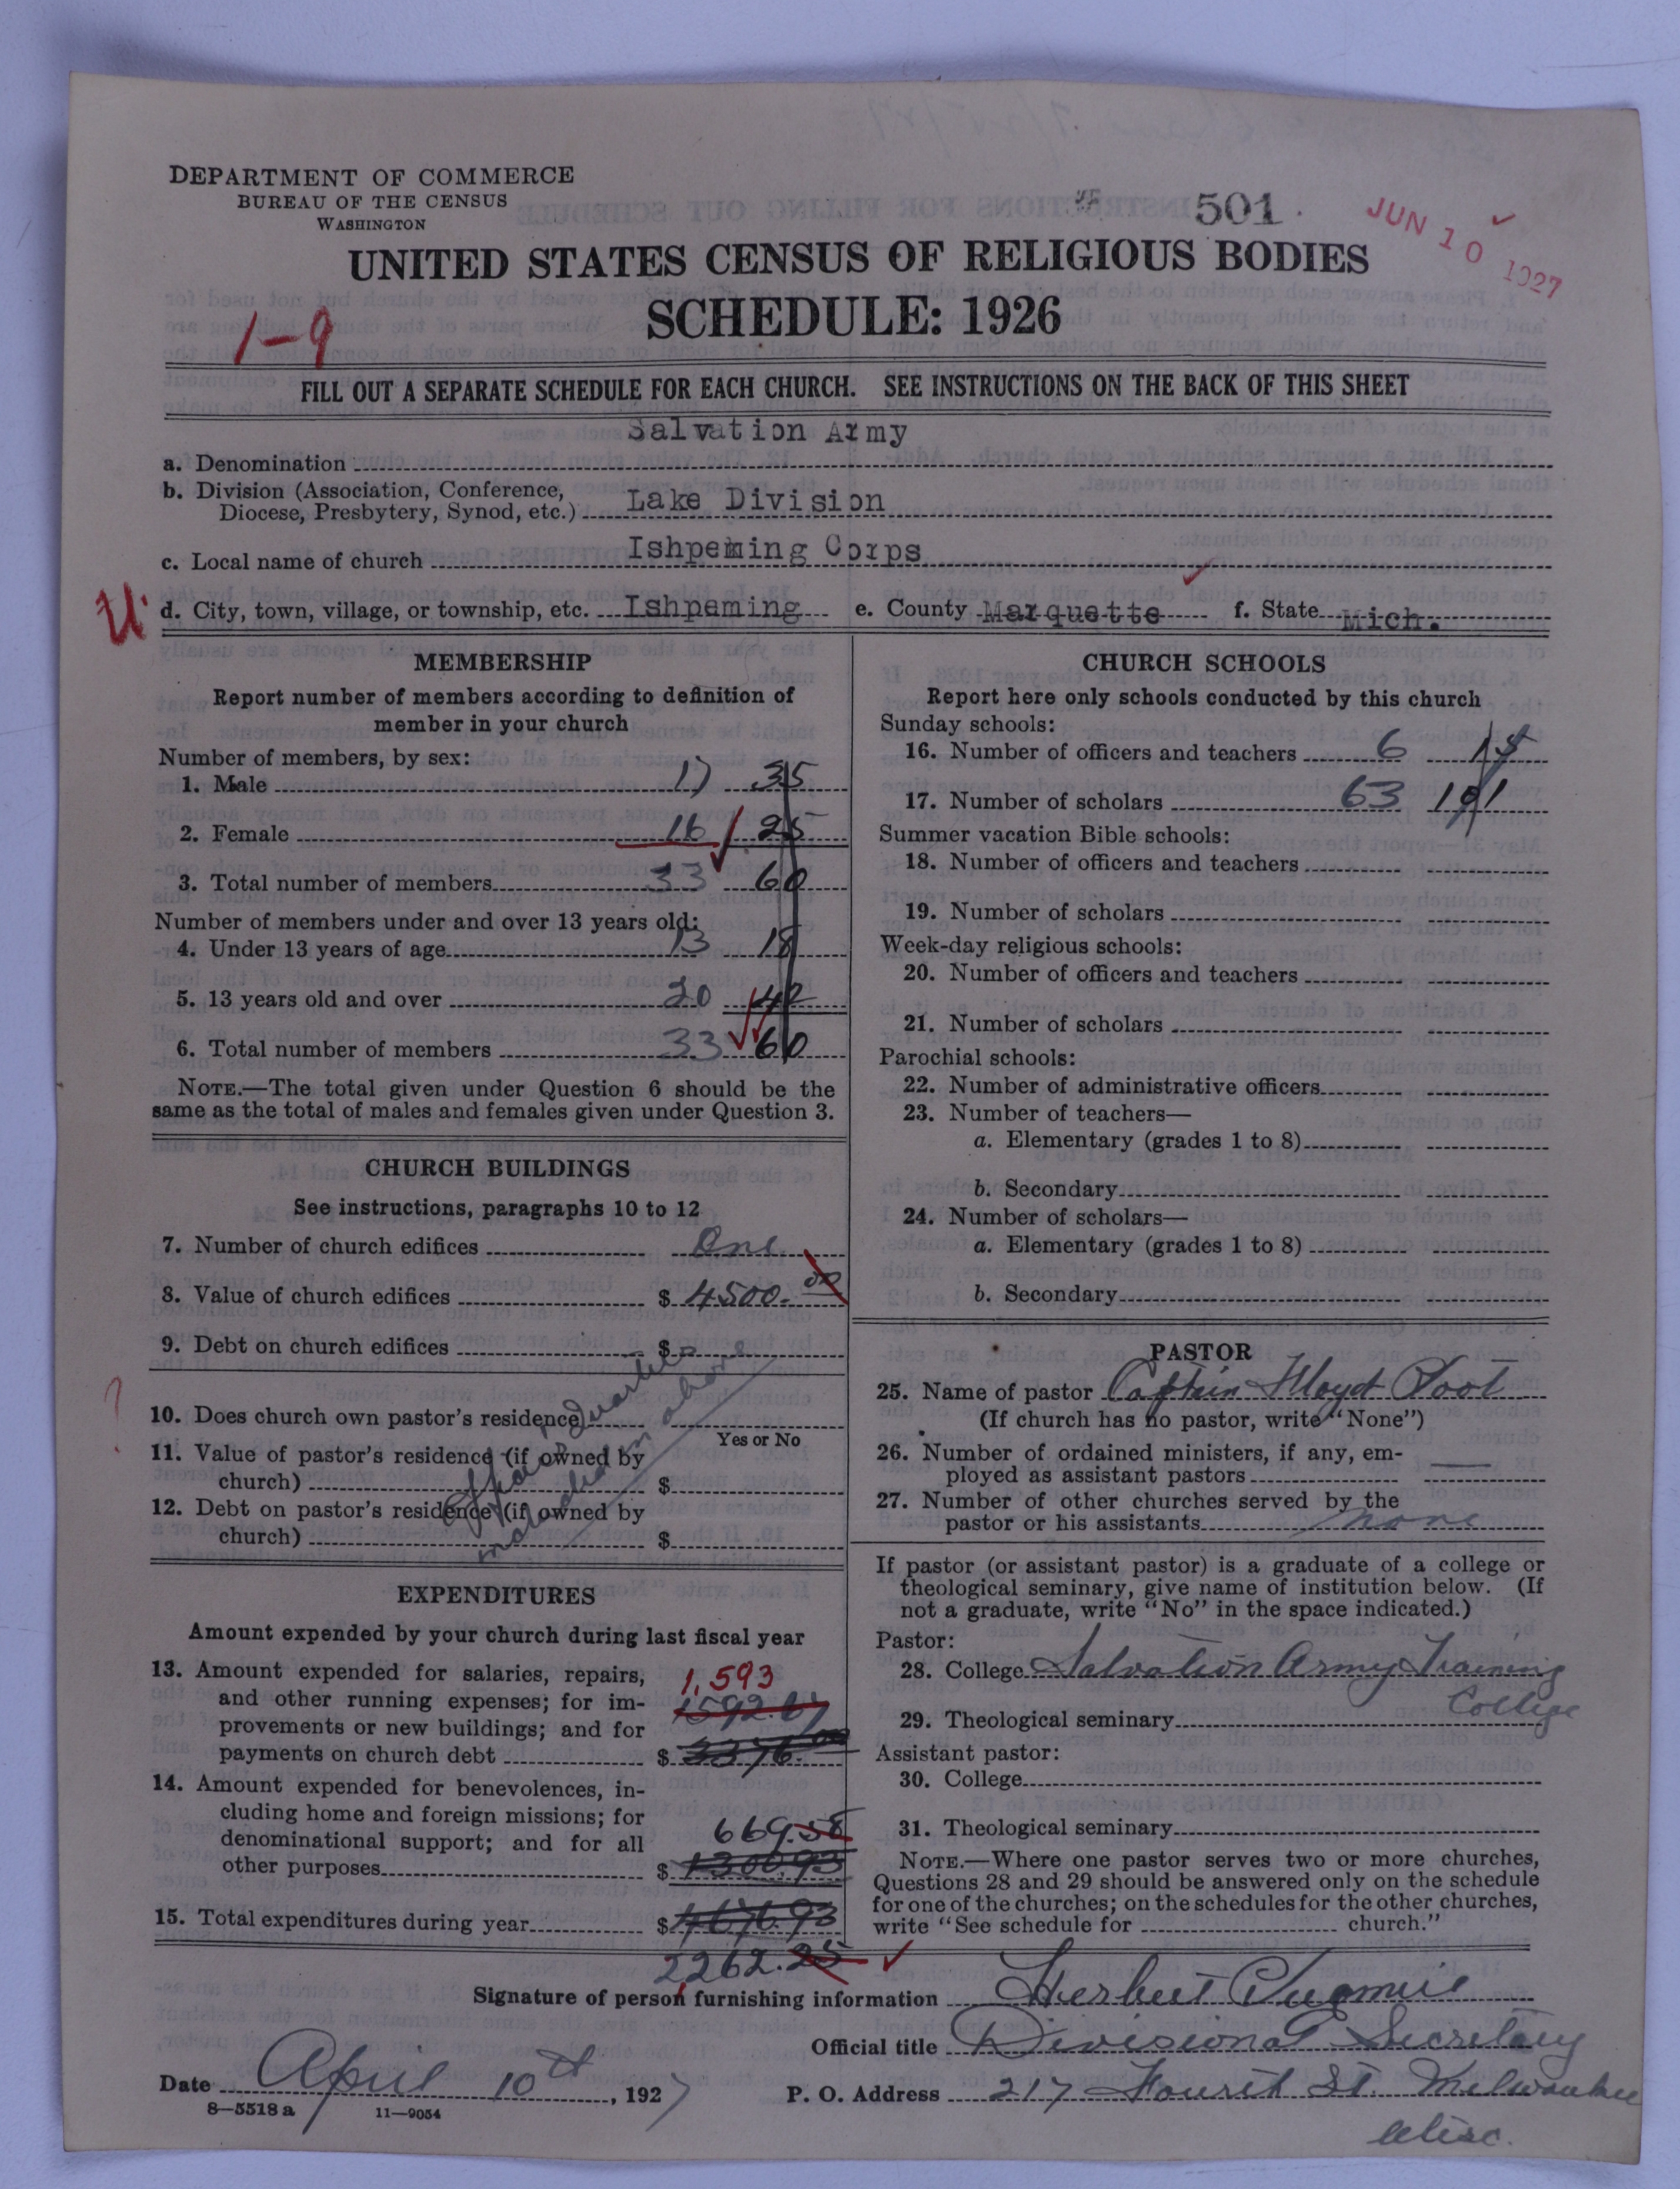 DEPARTMENT OF COMMERCE
BUREAU OF THE CENSUS
WASHINGTON
501
JUN 10 1927
UNITED STATES CENSUS OF RELIGIOUS BODIES
SCHEDULE: 1926
1-9
FILL OUT A SEPARATE SCHEDULE FOR EACH CHURCH. SEE INSTRUCTIONS ON THE BACK OF THIS SHEET
a. Denomination Salvation Army
b. Division (Association, Conference,
Diocese, Presbytery, Synod, etc.) Lake Division
c. Local name of church Ishpeming Corps
U
d. City, town, village, or township, etc. Ishpeming e. County Marquette f. State Mich.
MEMBERSHIP
Report number of members according to definition of
member in your church
Number of members, by sex:
1. Male 17 35
2. Female 16 25
3. Total number of members 33 60
Number of members under and over 13 years old:
4. Under 13 years of age 13 18
5. 13 years old and over 20 42
6. Total number of members 33 60
NOTE.—The total given under Question 6 should be the
same as the total of males and females given under Question 3.
CHURCH BUILDINGS
See instructions, paragraphs 10 to 12
7. Number of church edifices One
8. Value of church edifices $ 4500.00
9. Debt on church edifices $
?
10. Does church own pastor's residence
Yes or No
11. Value of pastor's residence (if owned by
church) $
12. Debt on pastor's residence (if owned by
church) $
Quarters
above
EXPENDITURES
Amount expended by your church during last fiscal year
13. Amount expended for salaries, repairs, 1,593
and other running expenses; for im- 1592.67
provements or new buildings; and for
payments on church debt $ 3376.00
14. Amount expended for benevolences, in-
cluding home and foreign missions; for
denominational support; and for all 669.58
other purposes $ 1300.93
15. Total expenditures during year $ 4676.93
2262.25
CHURCH SCHOOLS
Report here only schools conducted by this church
Sunday schools:
16. Number of officers and teachers 6
17. Number of scholars 63 191
Summer vacation Bible schools:
18. Number of officers and teachers
19. Number of scholars
Week-day religious schools:
20. Number of officers and teachers
21. Number of scholars
Parochial schools:
22. Number of administrative officers
23. Number of teachers—
a. Elementary (grades 1 to 8)
b. Secondary
24. Number of scholars—
a. Elementary (grades 1 to 8)
b. Secondary
PASTOR
25. Name of pastor Captain Floyd Root
(If church has no pastor, write "None")
26. Number of ordained ministers, if any, em-
ployed as assistant pastors —
27. Number of other churches served by the
pastor or his assistants none
If pastor (or assistant pastor) is a graduate of a college or
theological seminary, give name of institution below. (If
not a graduate, write "No" in the space indicated.)
Pastor:
28. College Salvation Army Training
College
29. Theological seminary
Assistant pastor:
30. College
31. Theological seminary
NOTE.—Where one pastor serves two or more churches,
Questions 28 and 29 should be answered only on the schedule
for one of the churches; on the schedules for the other churches,
write "See schedule for church."
Signature of person furnishing information Herbert
Official title Divisional Secretary
Date April 10th, 1927
P. O. Address 217 Fourth St. Milwaukee
Wisc.
8—5518 a 11—9054